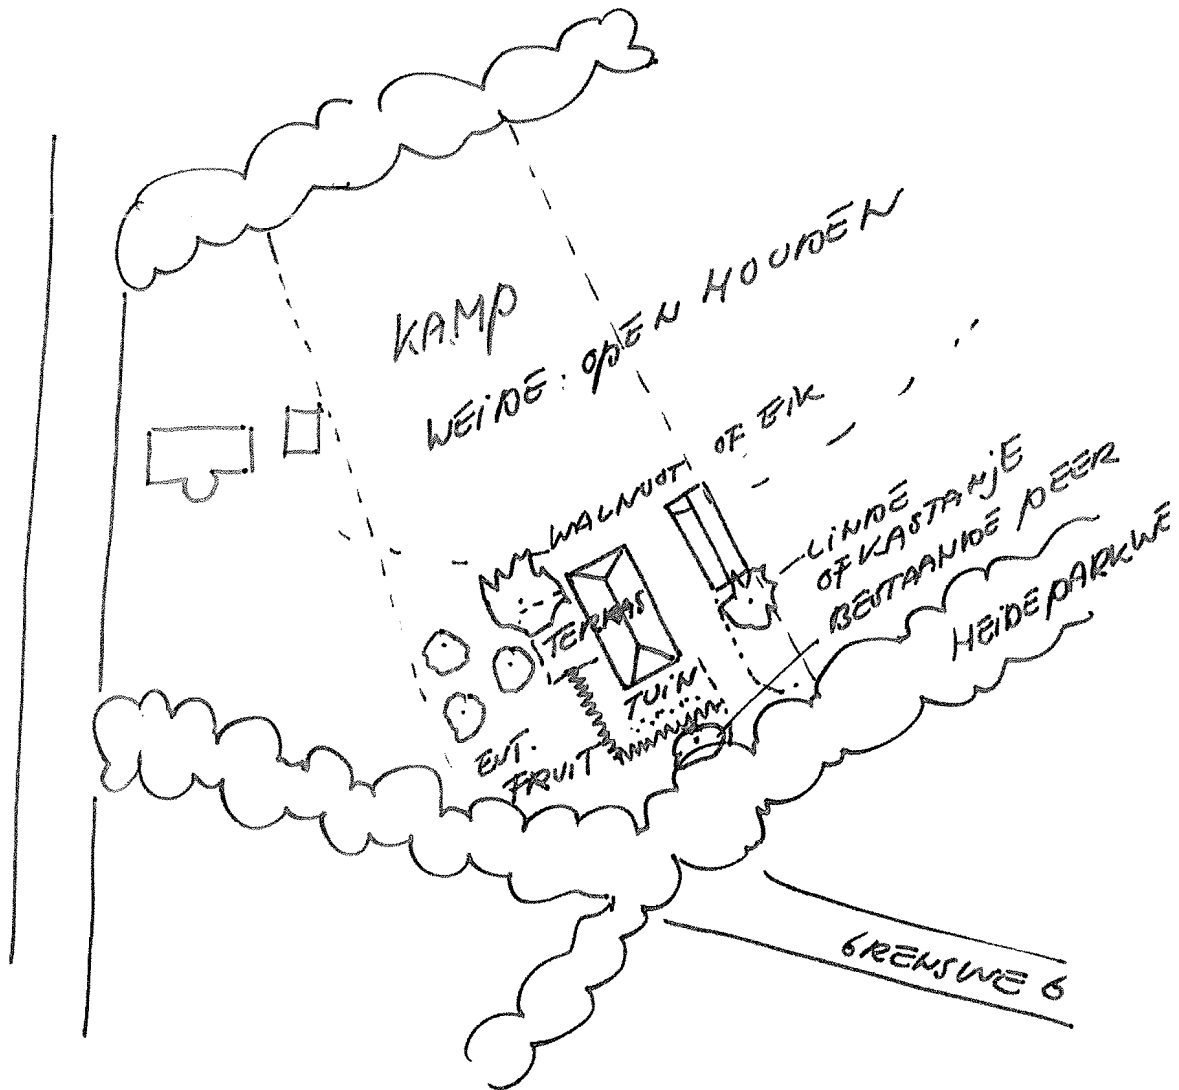 KAMP
WEIDE: OPEN HOUDEN
WALNUOT OF EIK
LINDE
OF KASTANJE
BESTAANDE PEER
HEIDEPARKWE
TERRAS
TUIN
EVT.
FRUIT
GRENSWEG